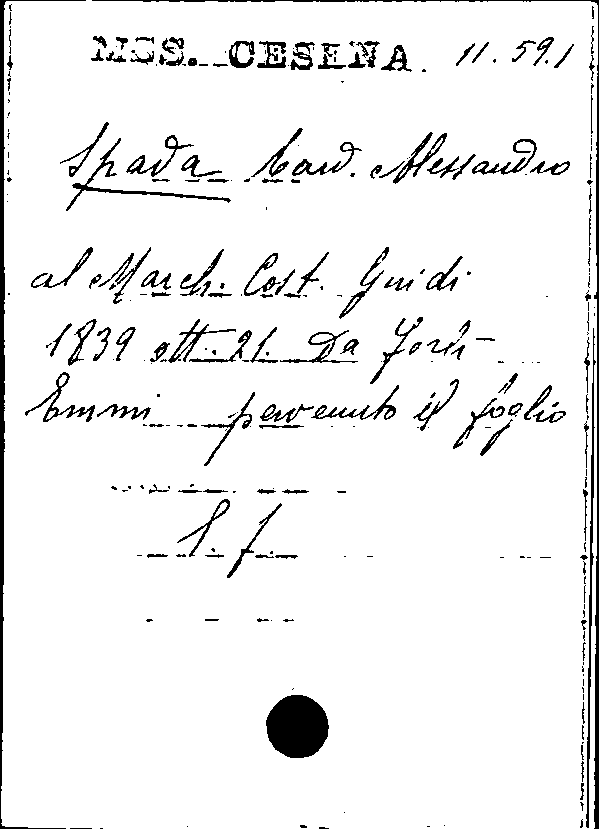 MSS. CESENA 11.59.1
Spada Card. Alessandro
al March. Cost. Guidi
1839 ott. 21. Da Forlì
Emmi pervenuto il foglio
l. f.